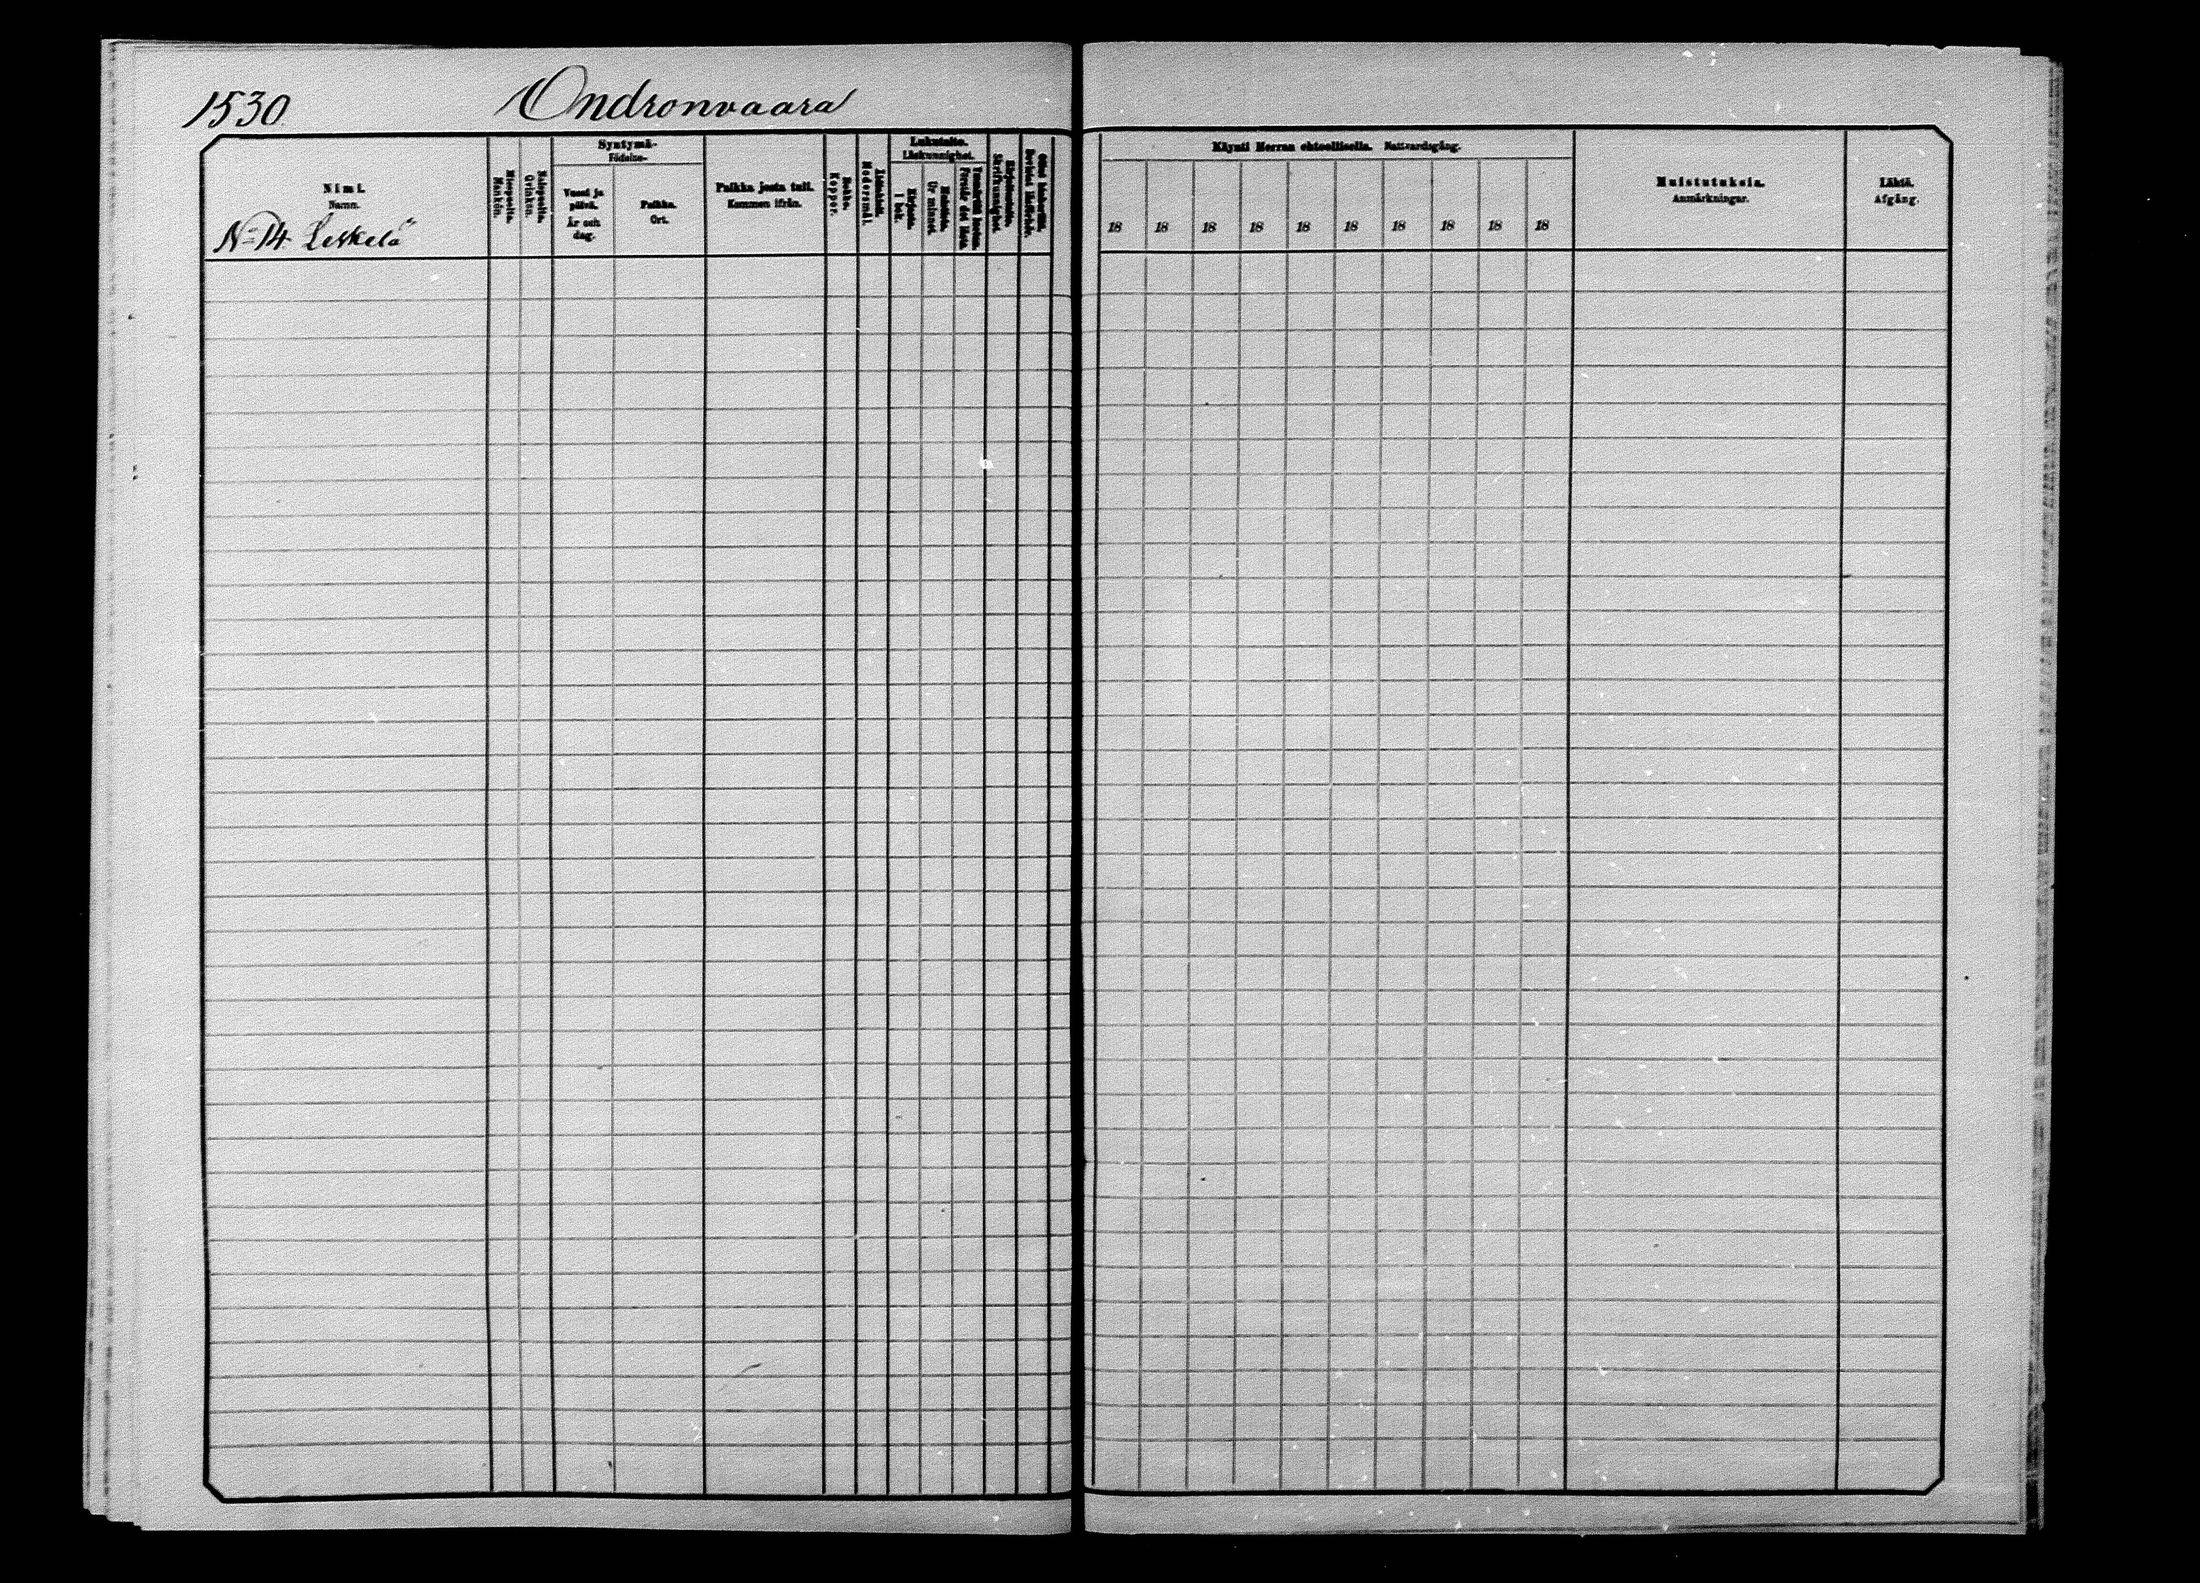 1530 Ondronvaara
Nimi.
Namn.
N=14 Leskelä
Miespuolta.
Mankön.
Naispuolta.
Qvinkön.
Syntymä-
Födelse-
Vuosi ja
päivä.
År och
dag.
Paikka.
Ort.
Paikka josta tuli.
Kommen ifrån.
Rokko.
Koppor.
Äidinkieli.
Modersmål.
Lukutaito.
Läskunnighet.
Kirjasta.
I bok.
Muistista.
Ur minnet.
Ymmärtää lukun.
Förstår det lästa.
Kirjoitustaito.
Skrifkunnighet.
Ollut lukusilla.
Bevistat läsförhör.
Käynti Herran ehtoollisella. Nattvardsgång.
18 18 18 18 18 18 18 18 18 18
Muistutuksia.
Anmärkningar.
Lähtö.
Afgång.